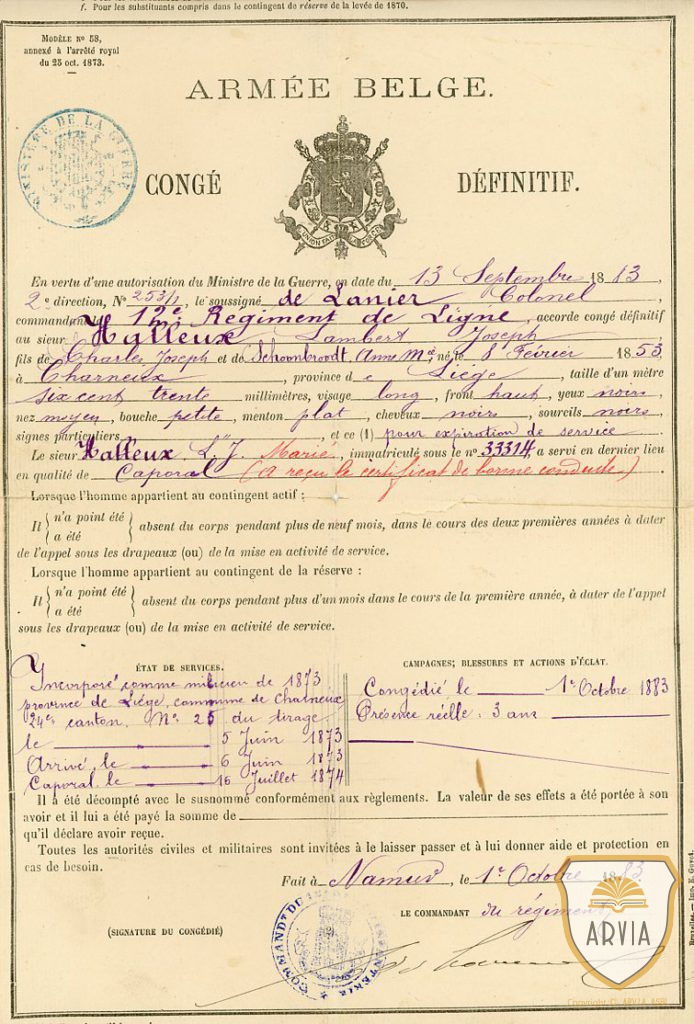 f. Pour les substituants compris dans le contingent de réserve de la levée de 1870.
MODÈLE No 58,
annexé à l'arrêté royal
du 25 oct. 1873.
ARMÉE BELGE.
MINISTÈRE DE LA GUERRE
CONGÉ DÉFINITIF.
L'UNION FAIT LA FORCE
En vertu d'une autorisation du Ministre de la Guerre, en date du 13 Septembre 1883,
2e direction, No 253/1, le soussigné de Lanier Colonel
commandant 12e Régiment de Ligne, accorde congé définitif
au sieur Halleux Lambert Joseph
fils de Charles Joseph et de Schoonbroodt, Anne Me, né le 8 Février 1853
à Charneux, province de Liège, taille d'un mètre
six cent trente millimètres, visage long, front haut, yeux noirs,
nez moyen, bouche petite, menton plat, cheveux noirs, sourcils noirs,
signes particuliers "", et ce (1) pour expiration de service
Le sieur Halleux, L. J. Marie, immatriculé sous le no 33314, a servi en dernier lieu
en qualité de Caporal (A reçu le certificat de bonne conduite.)
Lorsque l'homme appartient au contingent actif :
Il { n'a point été / a été } absent du corps pendant plus de neuf mois, dans le cours des deux premières années à dater
de l'appel sous les drapeaux (ou) de la mise en activité de service.
Lorsque l'homme appartient au contingent de la réserve :
Il { n'a point été / a été } absent du corps pendant plus d'un mois dans le cours de la première année, à dater de l'appel
sous les drapeaux (ou) de la mise en activité de service.
ÉTAT DE SERVICES.
Incorporé comme milicien de 1873
province de Liége, commune de Charneux
24e canton. No 25 du tirage
le 5 Juin 1873
Arrivé le 6 Juin 1873
Caporal le 16 Juillet 1874
CAMPAGNES; BLESSURES ET ACTIONS D'ÉCLAT.
Congédié le 1er Octobre 1883
Présence réelle : 3 ans
Il a été décompté avec le susnommé conformément aux règlements. La valeur de ses effets a été portée à son
avoir et il lui a été payé la somme de
qu'il déclare avoir reçue.
Toutes les autorités civiles et militaires sont invitées à le laisser passer et à lui donner aide et protection en
cas de besoin.
Fait à Namur, le 1er Octobre 1883.
LE COMMANDANT du régiment,
(SIGNATURE DU CONGÉDIÉ)
Bruxelles. — Imp. E. Guyot.
ARVIA
Copyright © ARVIA ASBL